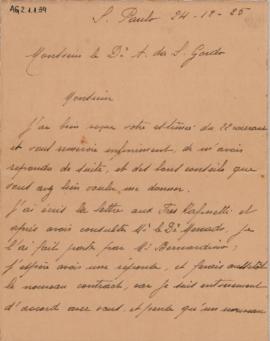 AG2.1.1.59
S. Paulo 24-12-25
Monsieur le Dr A. da S. Gordo
Monsieur
J'ai bien reçue votre estimée du 22 courant
et vous remercie infiniment, de m'avoir
repondu de suite, et des bons conseils que
vous avez bien voulu me donner.
J'ai suis la lettre aux Fres
après avoir consulter Mr le Dr je
l'ai fait porté par Mr Bernardino;
j'espère avoir une réponse, et ferais aussitôt
le nouveau contract, car je suis entièrement
d'accords avec vous, et pense qu'un nouveau